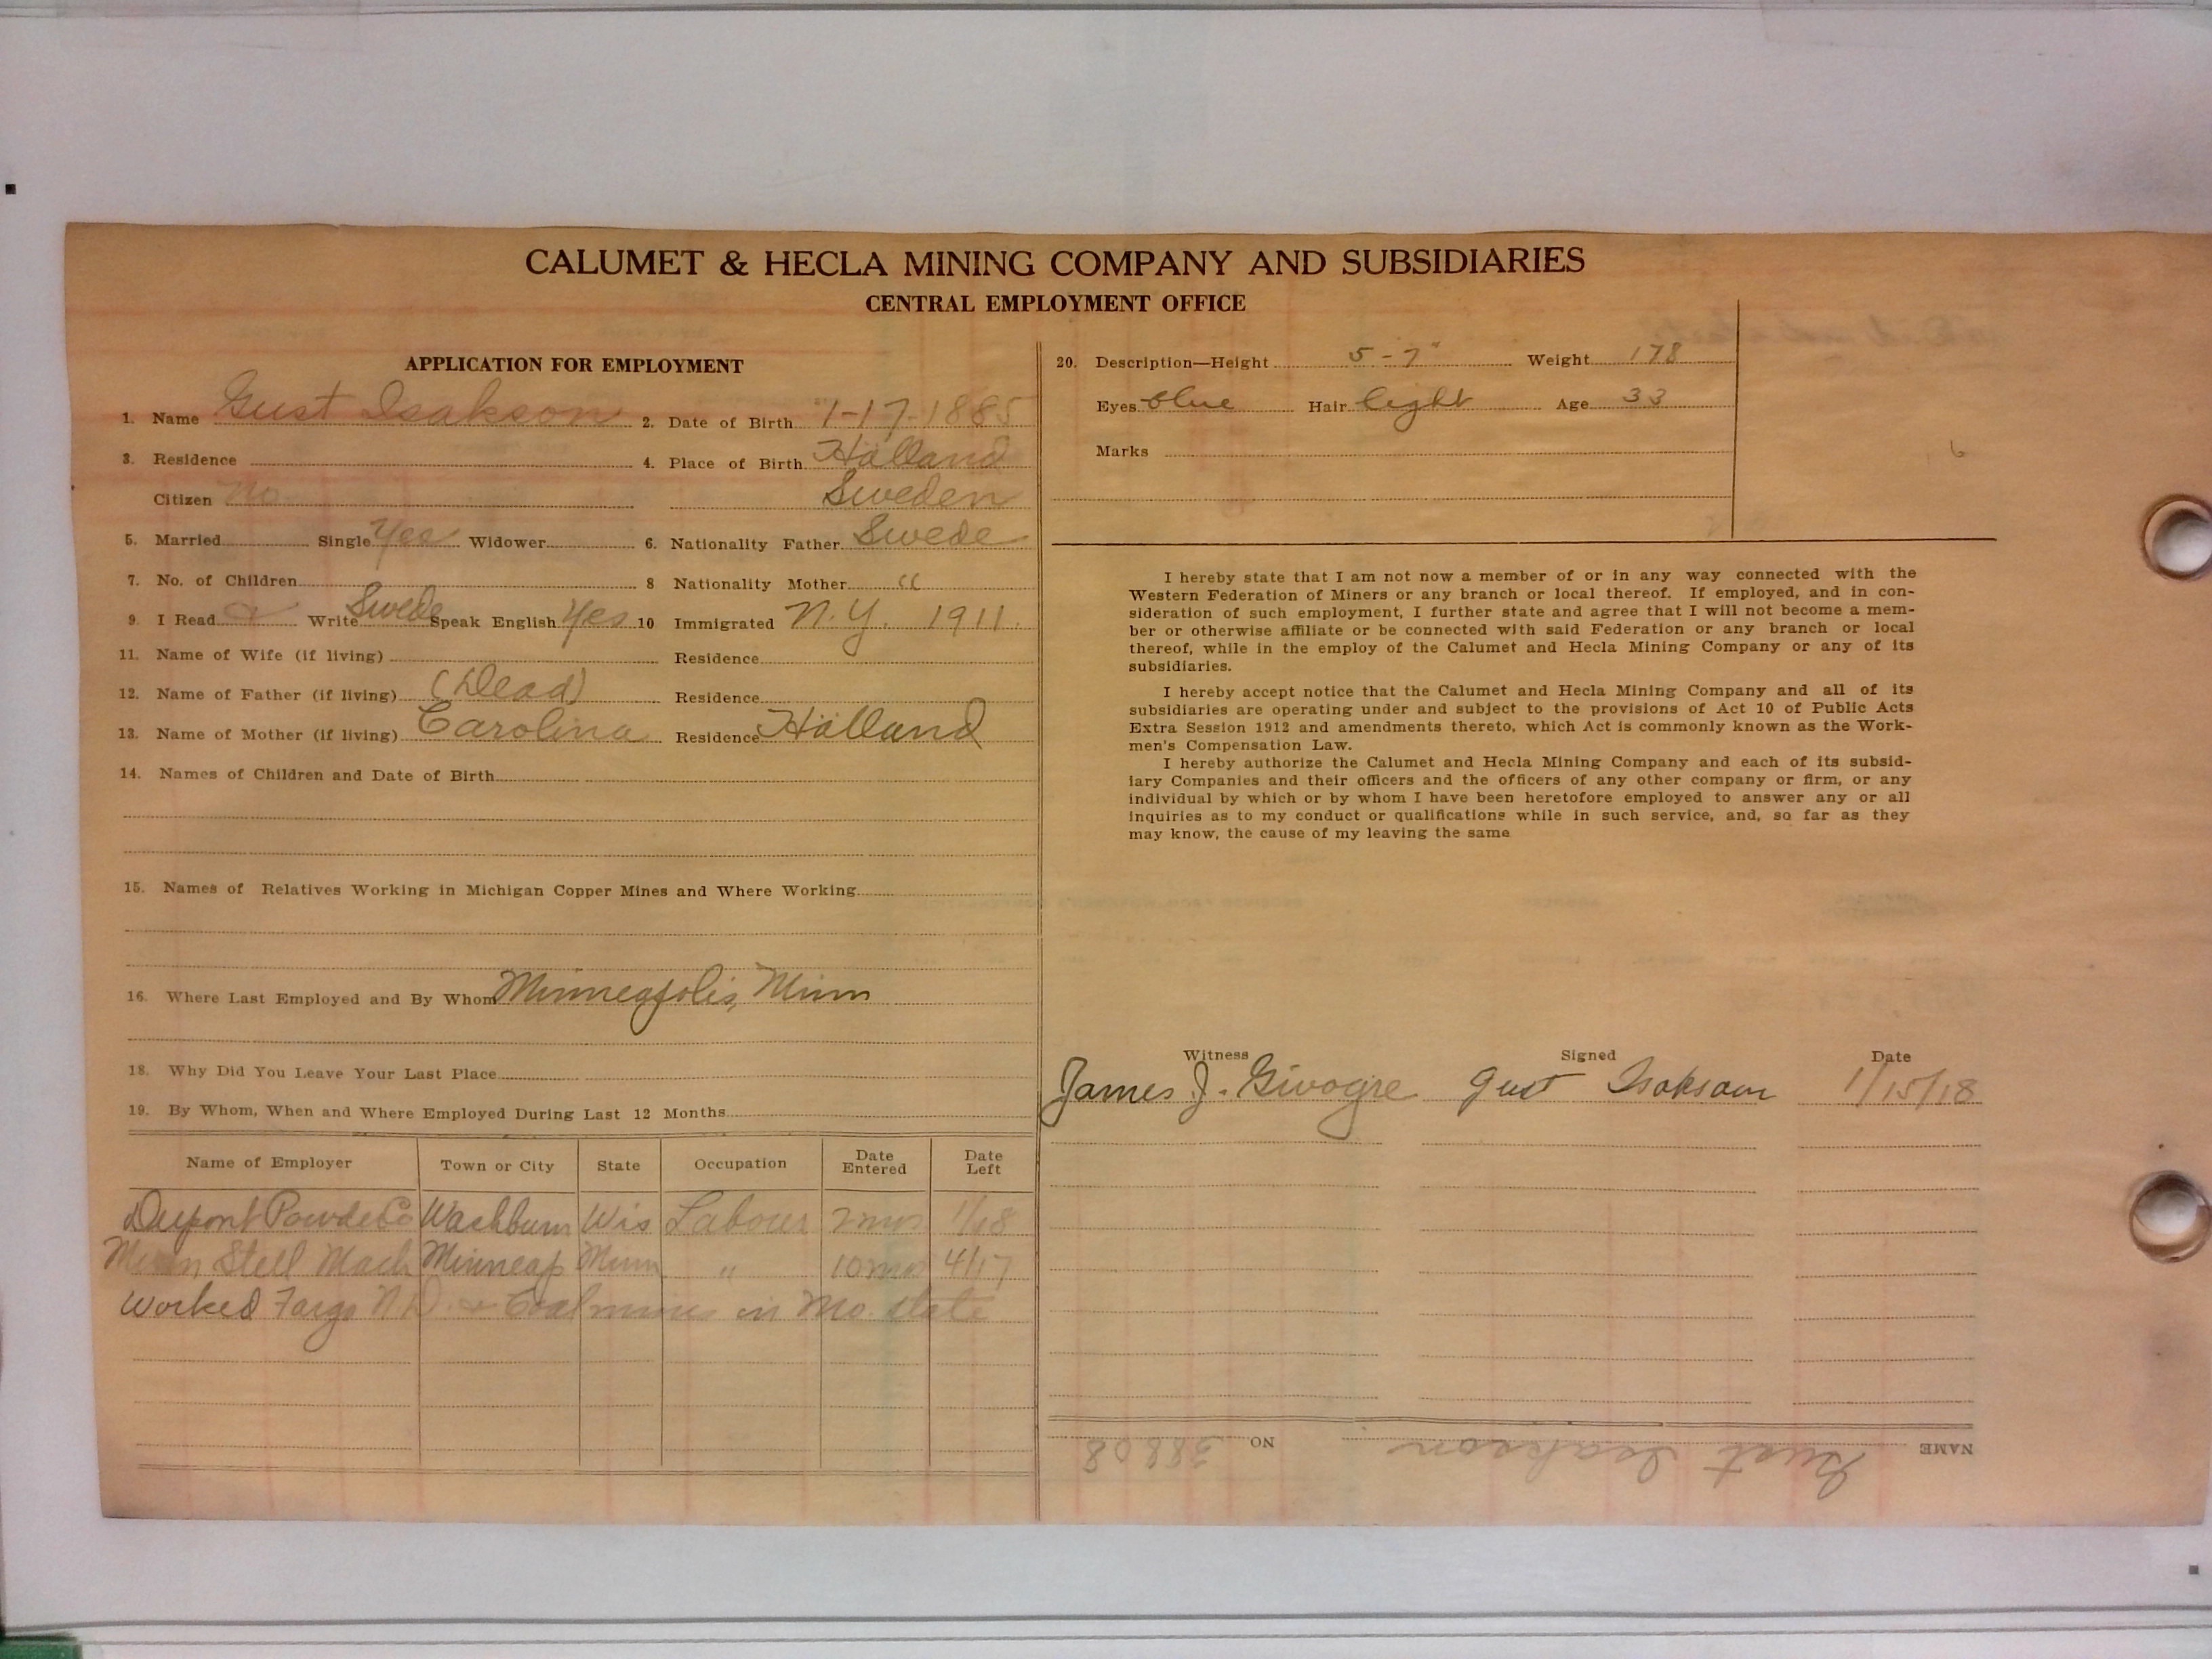 CALUMET & HECLA MINING COMPANY AND SUBSIDIARIES
CENTRAL EMPLOYMENT OFFICE
APPLICATION FOR EMPLOYMENT
1. Name Gust Isakson 2. Date of Birth 1-17-1885
3. Residence 4. Place of Birth Halland
Citizen No Sweden
5. Married Single Yes Widower 6. Nationality Father Swede
7. No. of Children 8 Nationality Mother "
9. I Read & Write Swede Speak English Yes 10 Immigrated N.Y. 1911.
11. Name of Wife (if living) Residence
12. Name of Father (if living) (Dead) Residence
13. Name of Mother (if living) Carolina Residence Halland
14. Names of Children and Date of Birth
15. Names of Relatives Working in Michigan Copper Mines and Where Working
16. Where Last Employed and By Whom Minneapolis, Minn
18. Why Did You Leave Your Last Place
19. By Whom, When and Where Employed During Last 12 Months
Name of Employer Town or City State Occupation Date Entered Date Left
Dupont Powde Co Washburn Wis Labour 2 mos 1/18
Minn Stell Mach Minneap Minn " 10 mos 4/17
Worked Fargo N.D. & Coal mines in Mo. state
20. Description—Height 5-7" Weight 178
Eyes blue Hair light Age 33
Marks
6
I hereby state that I am not now a member of or in any way connected with the
Western Federation of Miners or any branch or local thereof. If employed, and in con-
sideration of such employment, I further state and agree that I will not become a mem-
ber or otherwise affiliate or be connected with said Federation or any branch or local
thereof, while in the employ of the Calumet and Hecla Mining Company or any of its
subsidiaries.
I hereby accept notice that the Calumet and Hecla Mining Company and all of its
subsidiaries are operating under and subject to the provisions of Act 10 of Public Acts
Extra Session 1912 and amendments thereto, which Act is commonly known as the Work-
men's Compensation Law.
I hereby authorize the Calumet and Hecla Mining Company and each of its subsid-
iary Companies and their officers and the officers of any other company or firm, or any
individual by which or by whom I have been heretofore employed to answer any or all
inquiries as to my conduct or qualifications while in such service, and, so far as they
may know, the cause of my leaving the same
Witness Signed Date
James J. Gust Isakson 1/15/18
NAME Gust Isakson NO 38808